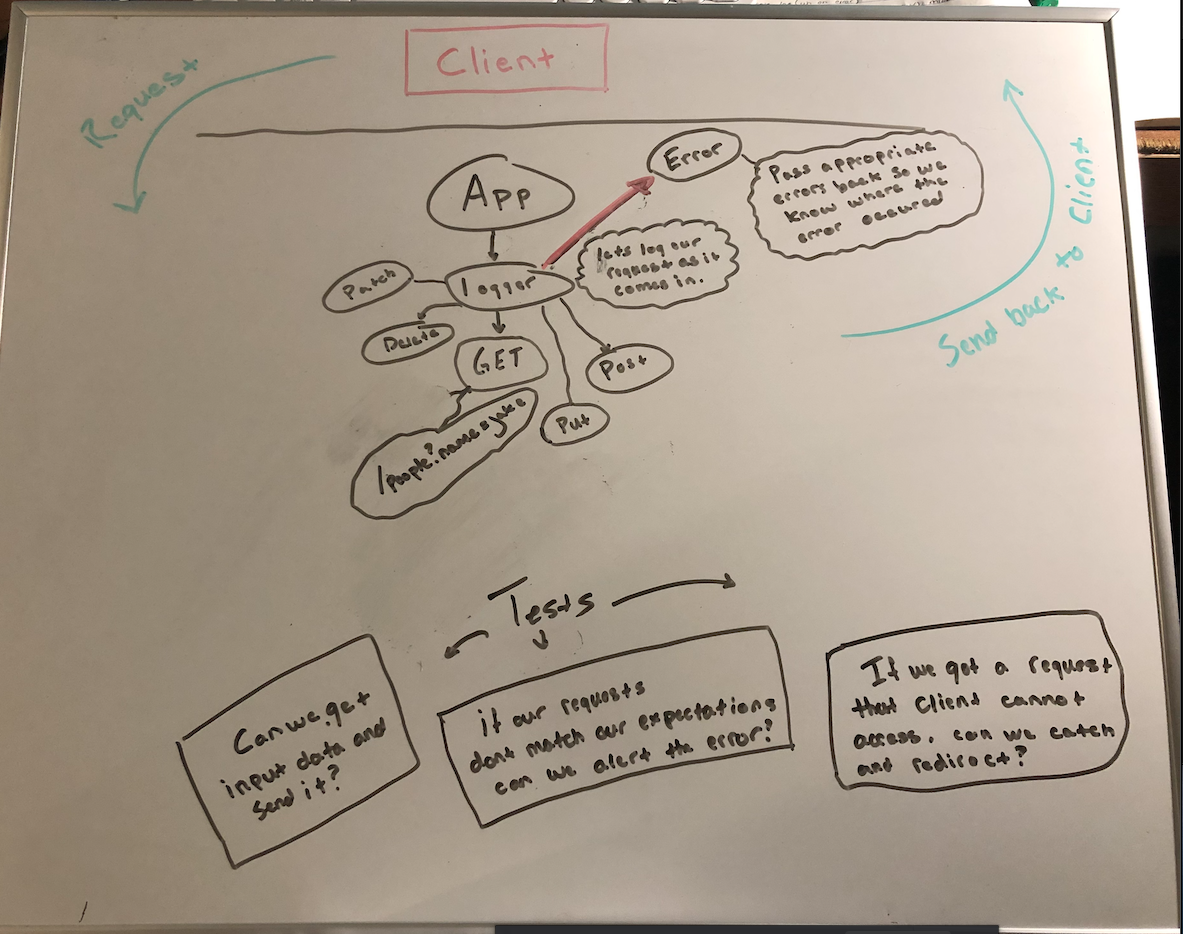 Client
Request
Error
Pass appropriate
errors back so we
know where the
error occured
App
lets log our
request as it
comes in.
Send back to Client
Patch
logger
Delete
GET
Post
/people?name=jake
Put
Tests
Can we get
input data and
send it?
if our requests
dont match our expectations
can we alert the error?
If we get a request
that client cannot
access, can we catch
and redirect?